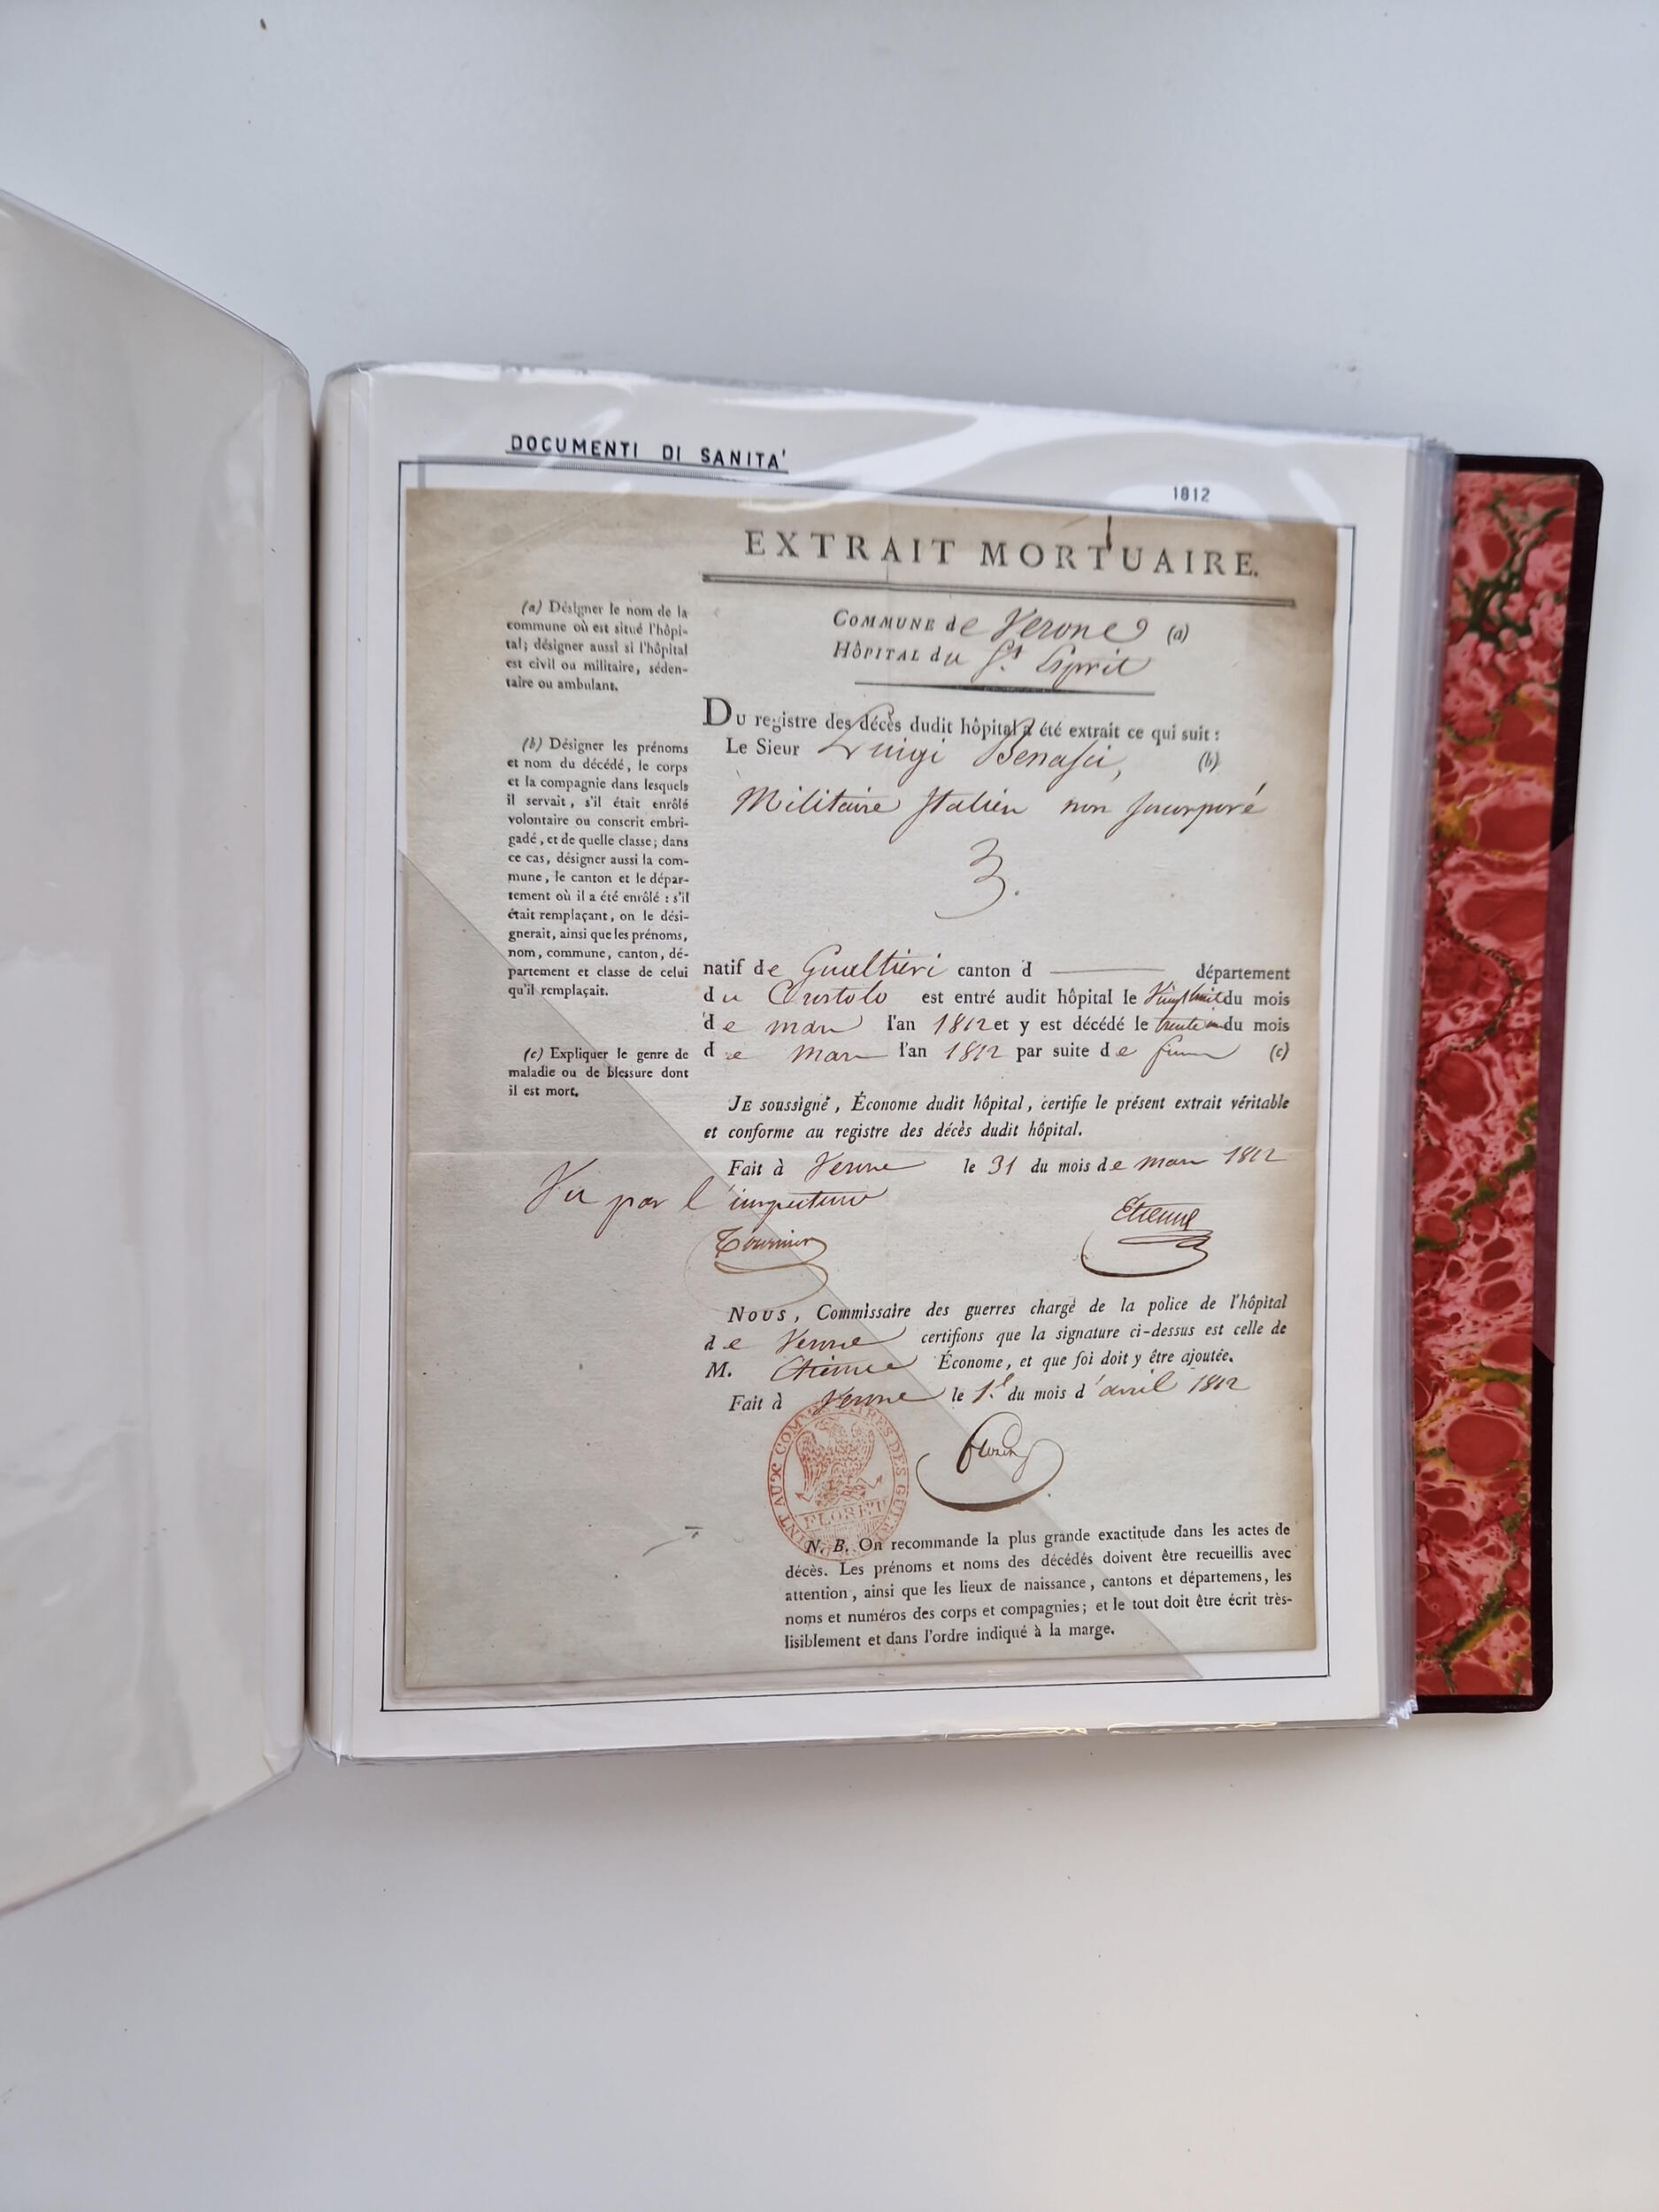 DOCUMENTI DI SANITA'
1812
EXTRAIT MORTUAIRE.
COMMUNE de Verone (a)
HÔPITAL du St. Esprit
(a) Désigner le nom de la
commune où est situé l'hôpi-
tal; désigner aussi si l'hôpital
est civil ou militaire, séden-
taire ou ambulant.
Du registre des décès dudit hôpital a été extrait ce qui suit :
Le Sieur Luigi Benassi, (b)
Militaire Italien non Incorporé
(b) Désigner les prénoms
et nom du décédé, le corps
et la compagnie dans lesquels
il servait, s'il était enrôlé
volontaire ou conscrit embri-
gadé, et de quelle classe; dans
ce cas, désigner aussi la com-
mune, le canton et le dépar-
tement où il a été enrôlé : s'il
était remplaçant, on le dési-
gnerait, ainsi que les prénoms,
nom, commune, canton, dé-
partement et classe de celui
qu'il remplaçait.
natif de Gualtieri canton d département
du Crostolo est entré audit hôpital le Vingt huit du mois
de mars l'an 1812 et y est décédé le trente un du mois
de mars l'an 1812 par suite de (c)
(c) Expliquer le genre de
maladie ou de blessure dont
il est mort.
JE soussigné, Économe dudit hôpital, certifie le présent extrait véritable
et conforme au registre des décès dudit hôpital.
Fait à Verone le 31 du mois de mars 1812
Vu par l'inspecteur
Tournier
Etienne
NOUS, Commissaire des guerres chargé de la police de l'hôpital
de Verone certifions que la signature ci-dessus est celle de
M. Etienne Économe, et que foi doit y être ajoutée.
Fait à Verone le 1.er du mois d'avril 1812
N. B. On recommande la plus grande exactitude dans les actes de
décès. Les prénoms et noms des décédés doivent être recueillis avec
attention, ainsi que les lieux de naissance, cantons et départemens, les
noms et numéros des corps et compagnies; et le tout doit être écrit très-
lisiblement et dans l'ordre indiqué à la marge.